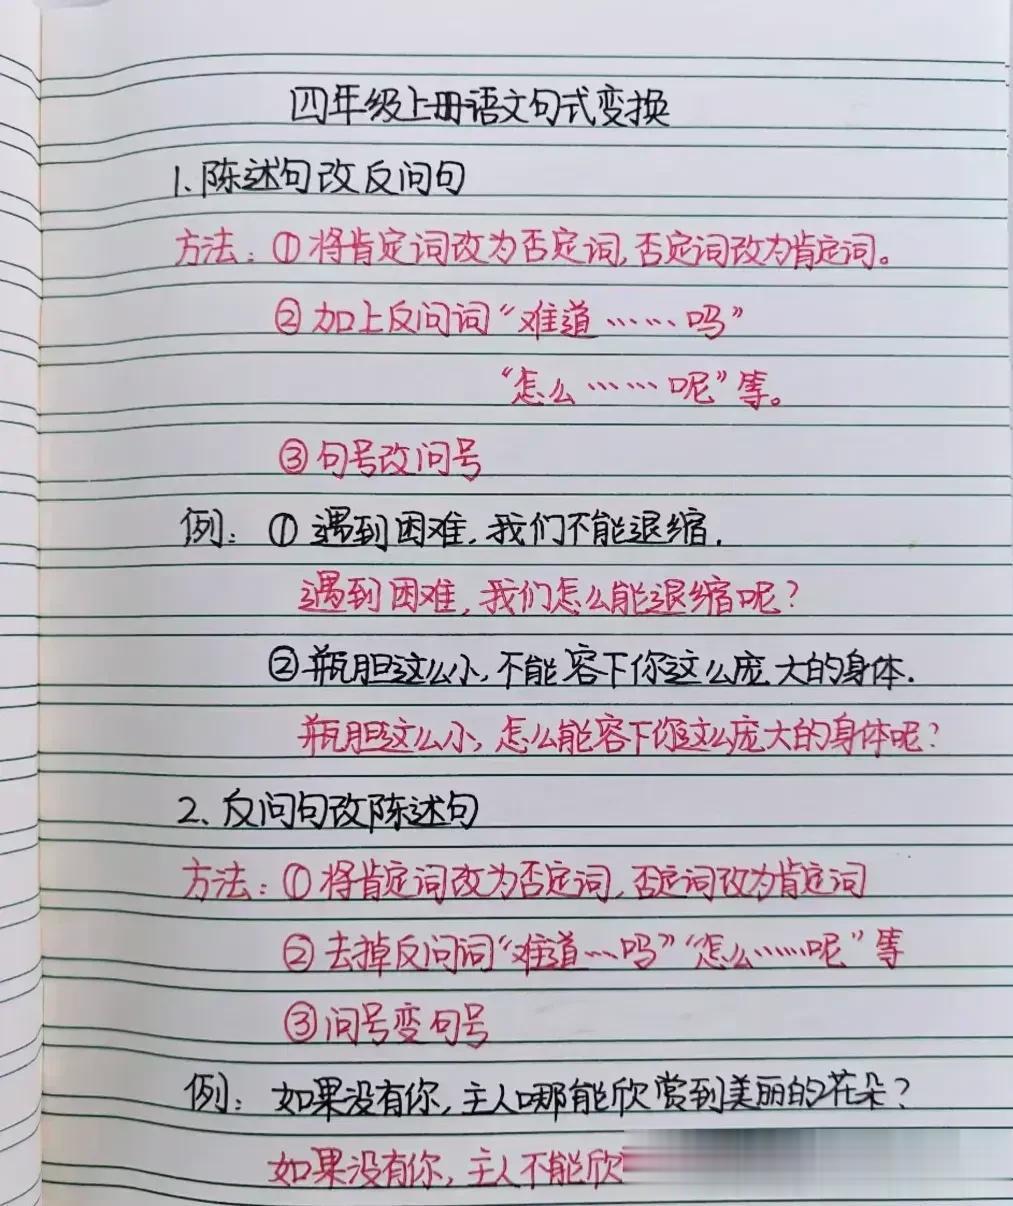 四年级上册语文句式变换
1、陈述句改反问句
方法：①将肯定词改为否定词,否定词改为肯定词。
②加上反问词“难道……吗”
“怎么……呢”等。
③句号改问号
例：①遇到困难,我们不能退缩.
遇到困难,我们怎么能退缩呢?
②瓶胆这么小,不能容下你这么庞大的身体.
瓶胆这么小,怎么能容下你这么庞大的身体呢?
2、反问句改陈述句
方法：①将肯定词改为否定词,否定词改为肯定词
②去掉反问词“难道…吗”“怎么……呢”等
③问号变句号
例：如果没有你,主人哪能欣赏到美丽的花朵?
如果没有你,主人不能欣